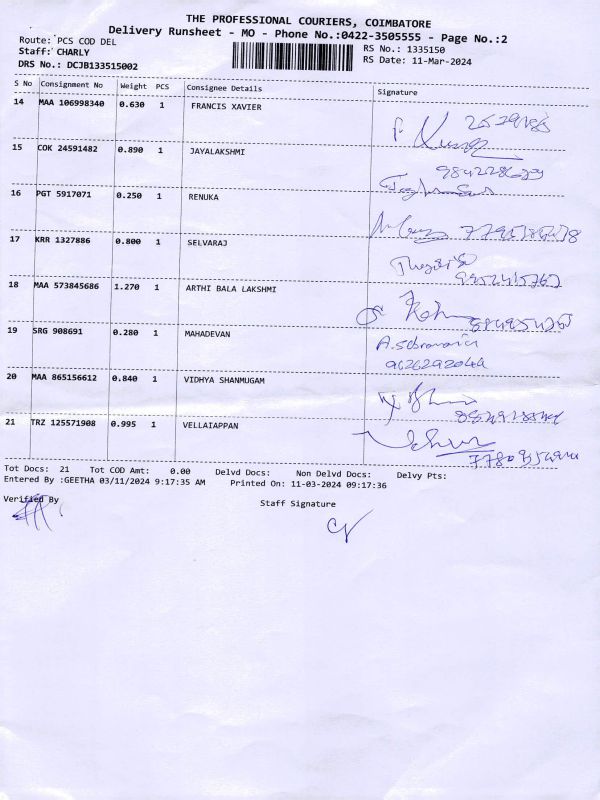 THE PROFESSIONAL COURIERS, COIMBATORE
Delivery Runsheet - MO - Phone No.:0422-3505555 - Page No.:2
Route: PCS COD DEL
RS No.: 1335150
Staff: CHARLY
RS Date: 11-Mar-2024
DRS No.: DCJB133515002
S No Consignment No Weight PCS Consignee Details Signature
14 MAA 106998340 0.630 1 FRANCIS XAVIER
15 COK 24591482 0.890 1 JAYALAKSHMI
16 PGT 5917071 0.250 1 RENUKA
17 KRR 1327886 0.800 1 SELVARAJ
18 MAA 573845686 1.270 1 ARTHI BALA LAKSHMI
19 SRG 908691 0.280 1 MAHADEVAN
9626292044
20 MAA 865156612 0.840 1 VIDHYA SHANMUGAM
21 TRZ 125571908 0.995 1 VELLAIAPPAN
Tot Docs: 21 Tot COD Amt: 0.00 Delvd Docs: Non Delvd Docs: Delvy Pts:
Entered By :GEETHA 03/11/2024 9:17:35 AM Printed On: 11-03-2024 09:17:36
Verified By
Staff Signature